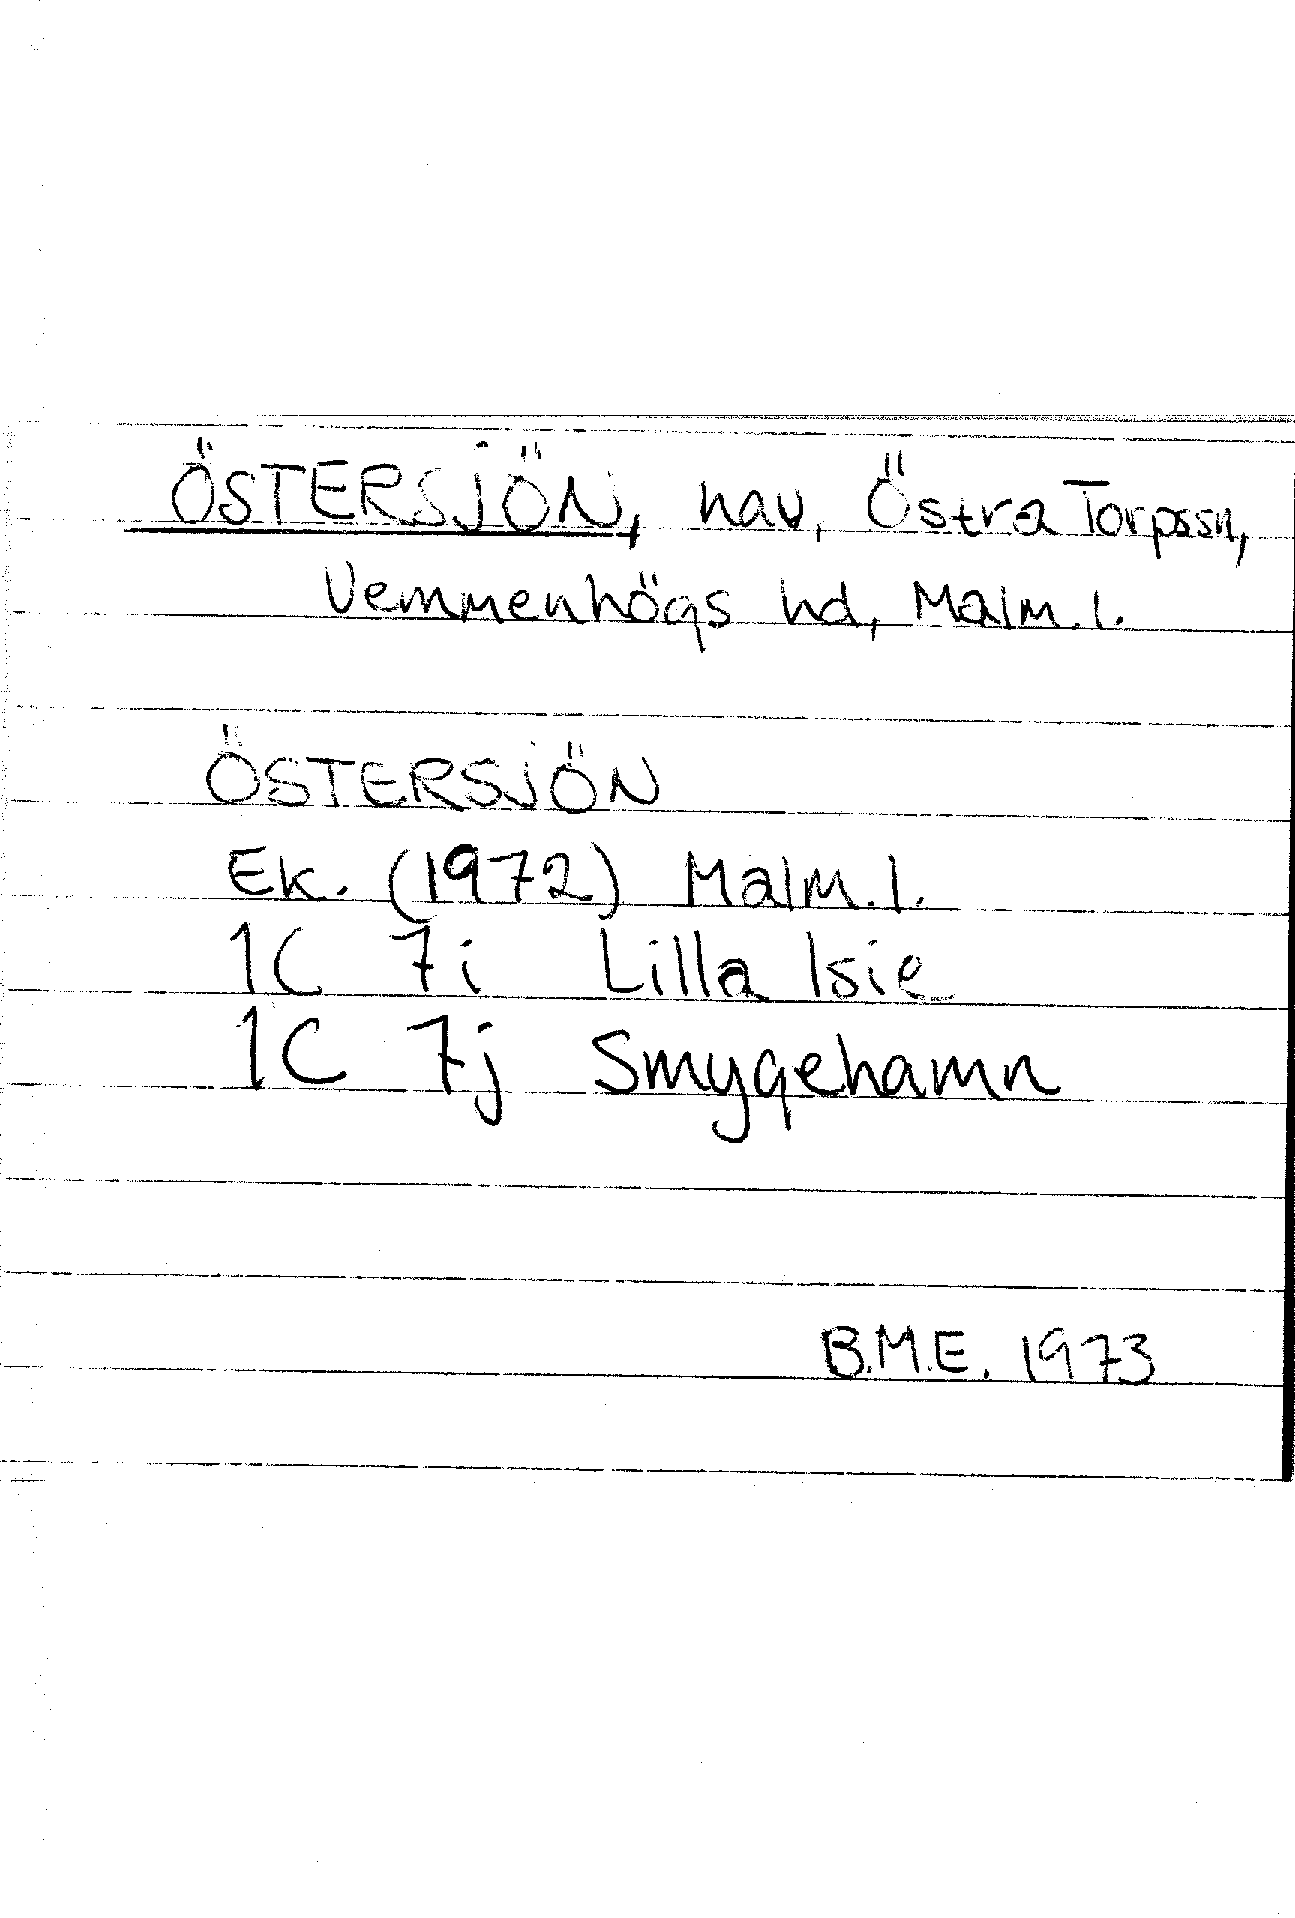 ÖSTERSJÖN, hav, Östra Torpssn,
Vemmenhögs hd, Malm.l.
ÖSTERSJÖN
Ek. (1972) Malm.l.
1C 7i Lilla Isie
1C 7j Smygehamn
B.M.E. 1973